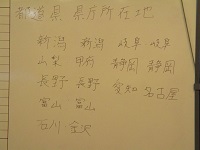 都道県 県庁所在地
新潟 新潟 岐阜 岐阜
山梨 甲府 静岡 静岡
長野 長野 愛知 名古屋
富山 富山
石川 金沢